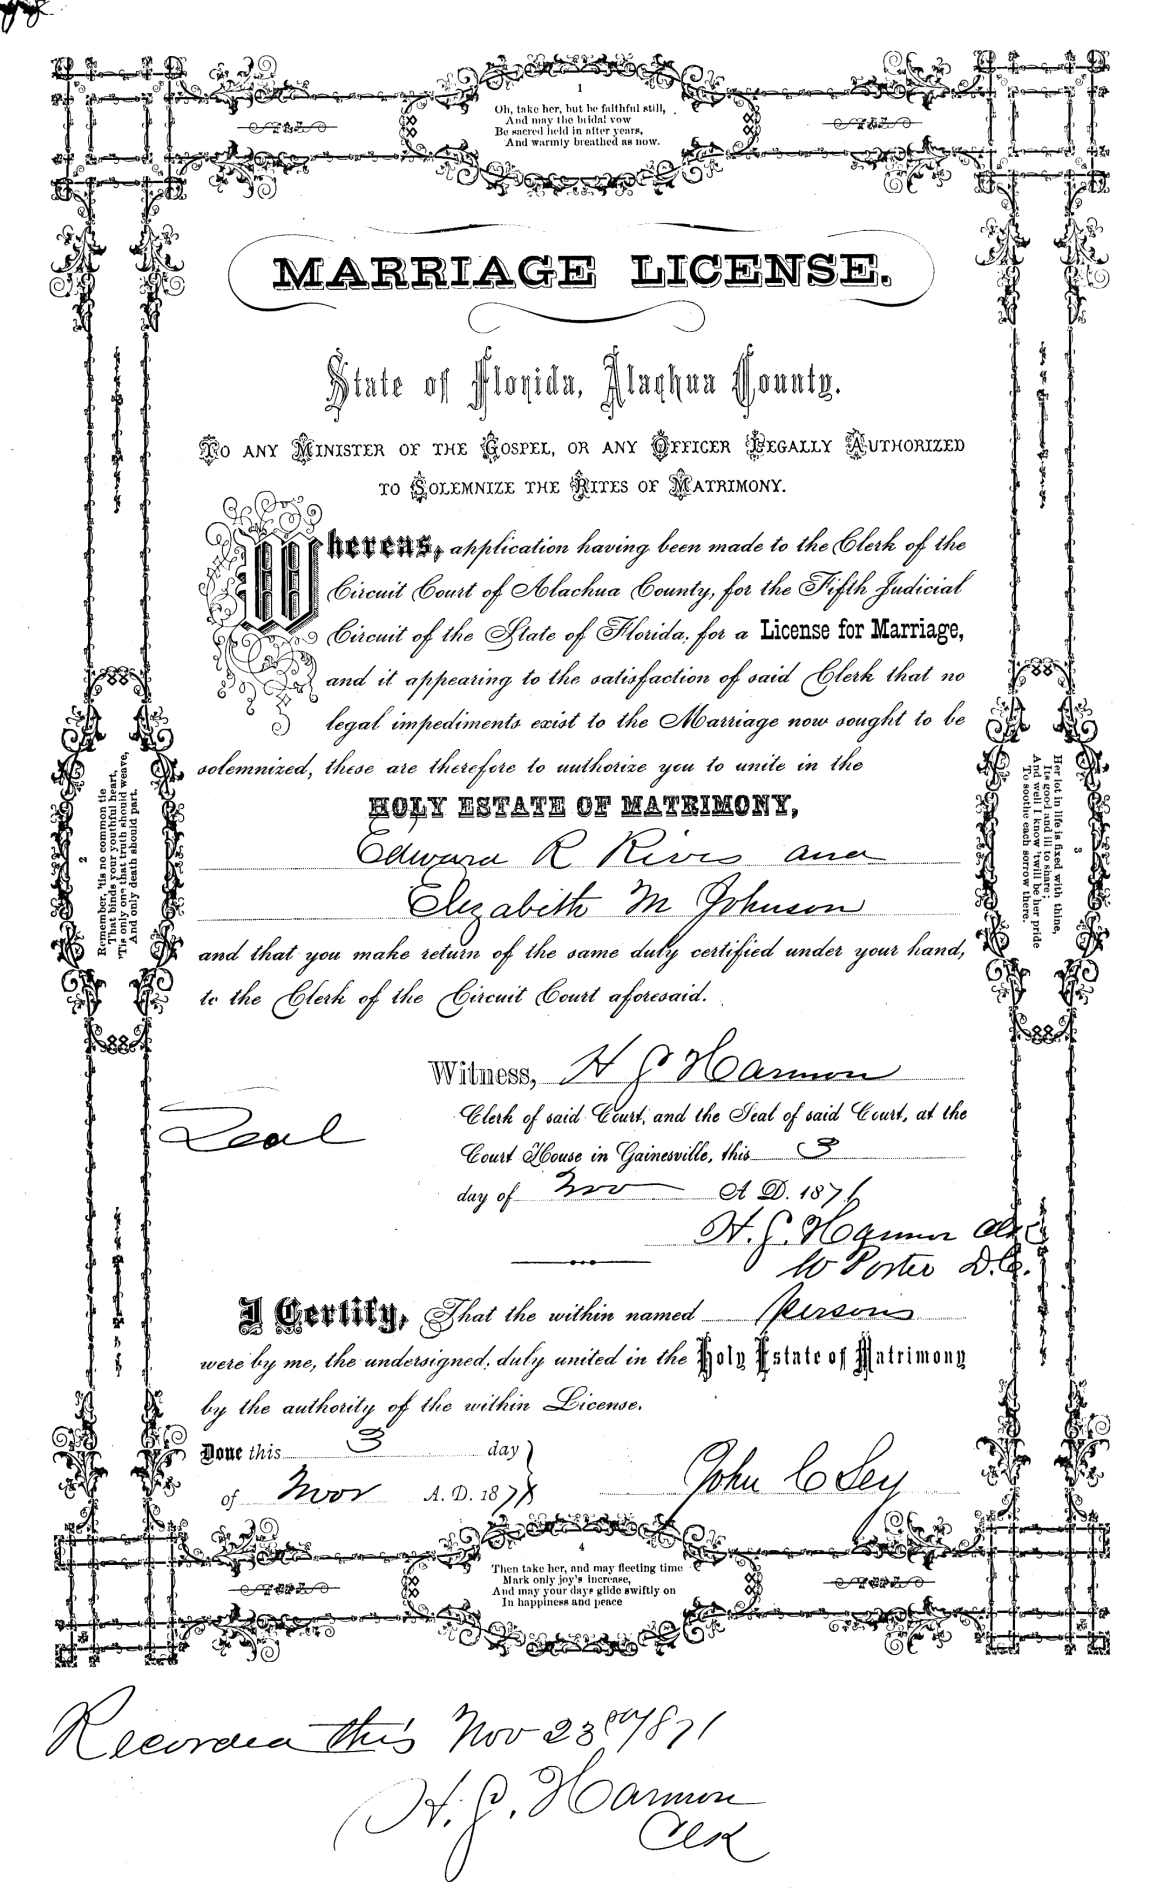 1
Oh, take her, but be faithful still,
And may the bridal vow
Be sacred held in after years,
And warmly breathed as now.
MARRIAGE LICENSE.
State of Florida, Alachua County.
TO ANY MINISTER OF THE GOSPEL, OR ANY OFFICER LEGALLY AUTHORIZED
TO SOLEMNIZE THE RITES OF MATRIMONY.
Whereas, application having been made to the Clerk of the
Circuit Court of Alachua County, for the Fifth Judicial
Circuit of the State of Florida, for a License for Marriage,
and it appearing to the satisfaction of said Clerk that no
legal impediments exist to the Marriage now sought to be
solemnized, these are therefore to authorize you to unite in the
HOLY ESTATE OF MATRIMONY,
Edward R Rives and
Elizabeth M Johnson
and that you make return of the same duly certified under your hand,
to the Clerk of the Circuit Court aforesaid.
2
Remember, 'tis no common tie
That binds your youthful heart,
'Tis only one that truth should weave,
And only death should part.
3
Her lot in life is fixed with thine,
Its good and ill to share;
And well I know 'twill be her pride
To soothe each sorrow there.
Witness, H J Harmon
Seal
Clerk of said Court, and the Seal of said Court, at the
Court House in Gainesville, this 3
day of Nov A. D. 1871
H. J. Harmon Clk
W Porter D.C.
I Certify, That the within named persons
were by me, the undersigned, duly united in the Holy Estate of Matrimony
by the authority of the within License.
Done this 3 day
of Nov A. D. 1871
John C Ley
4
Then take her, and may fleeting time
Mark only joy's increase,
And may your days glide swiftly on
In happiness and peace
Recorded this Nov 23rd 1871
H. J. Harmon
Clk